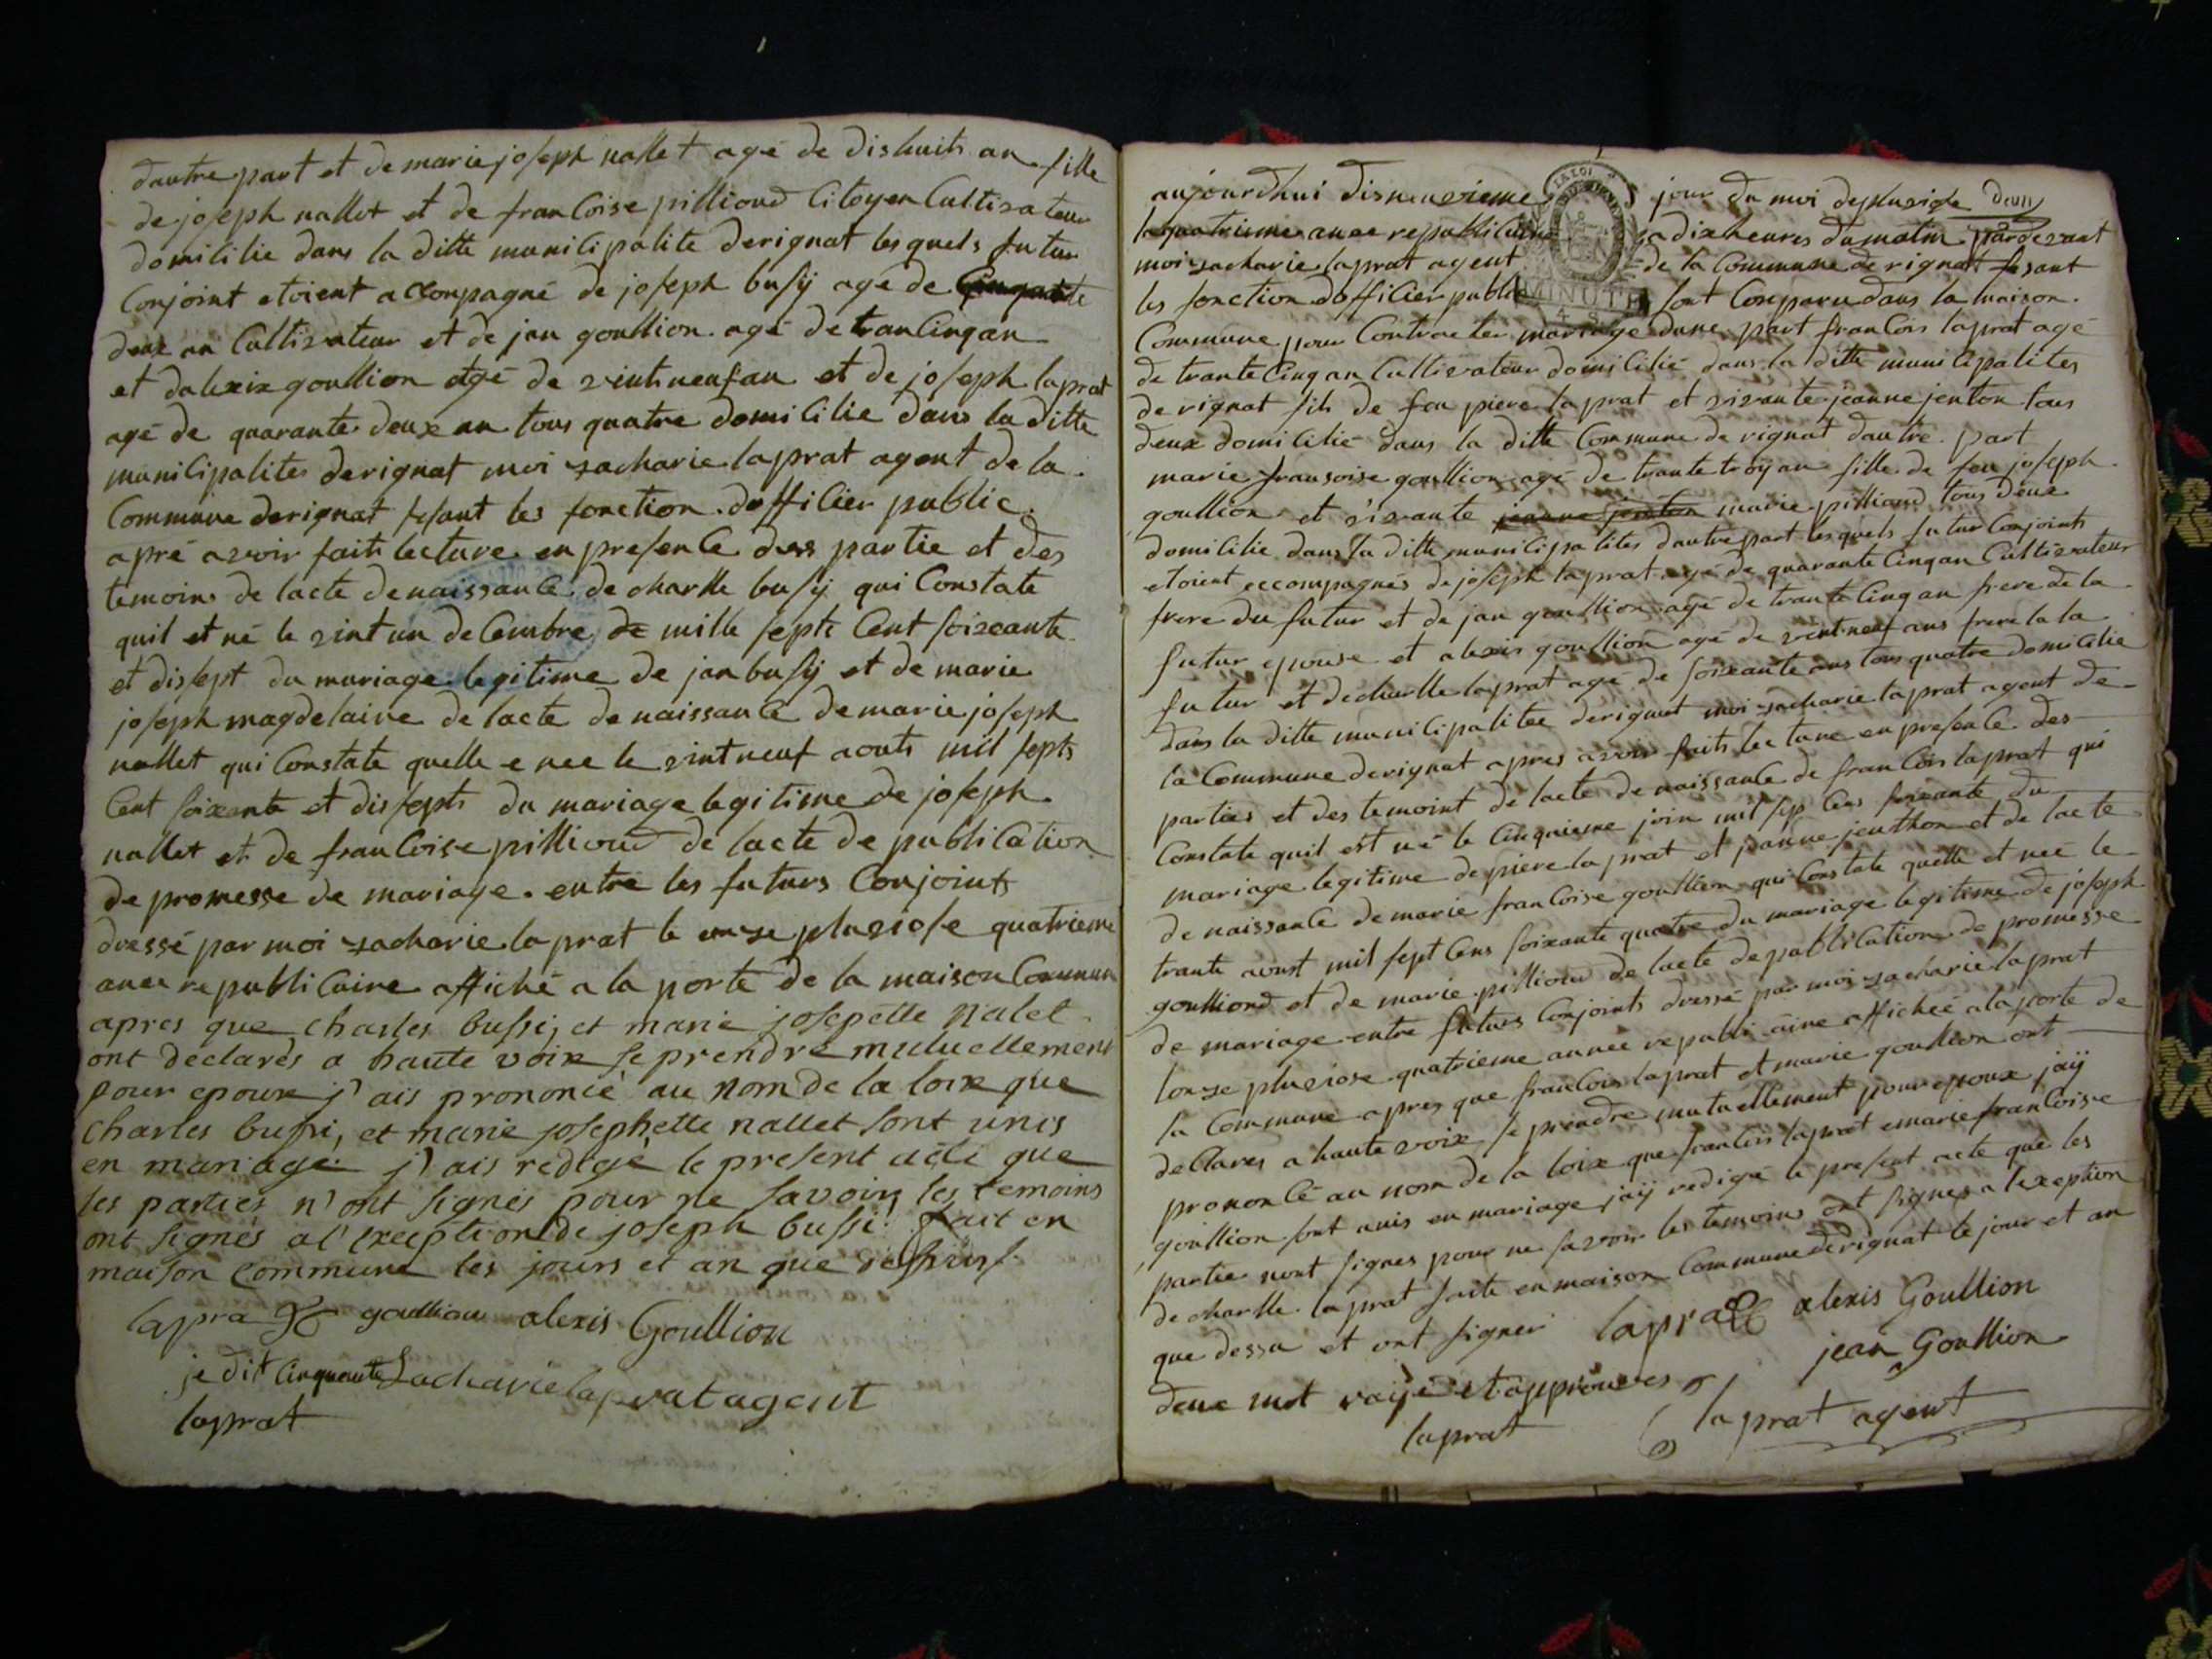 dautre part et de marie joseph nallet agé de dishuits an fille
de joseph nallet et de francoise pilliond Citoyen Cultivateur
domicilie dans la ditte municipalite derignat les quels futur
Conjoint etoient acconpagné de joseph busÿ agé de Cinquante
deux an Cultivateur et de jan goullion agé de tranCinqan
et dalexix goullion agé de vintneufan et de joseph laprat
agé de quarante deux an tous quatre domicilie dans la ditte
municipalites derignat moi zacharie laprat agent de la
Commune derignat fesant les fonction dofficier public
apré avoir faits lecture en presence des partie et des
temoins de lacte denaissance de charlle busÿ qui Constate
quil et né le vint un decembre de mille septs Cent soixante
et dissept du mariage legitime de jan busÿ et de marie
joseph magdelaine de lacte denaissance de marie joseph
nallet qui Constate quelle e nee le vintneuf aouts mil septs
Cent soixante et dissepts du mariage legitime de joseph
nallet et de francoise pilliond de lacte de publication
de promesse de mariage entre les futurs Conjoints
dressé par moi zacharie laprat le onze pluviose quatrieme
anee republicaine affiché a la porte de la maison Commun
apres que charles bussi, et marie josepette nalet
ont declarés a haute voix se prendre mutuellement
pour epoux j'ais prononcé au nom de la loix que
Charles bussi, et marie josephette nallet sont unis
en mariage j'ais redigé le present acte que
les parties n'ont signés pour ne savoir, les temoins
ont signés a l'exception de joseph bussi fait en
maison Commune les jours et an que
lapra goullion alexis Goullion
je dit Cinquante Zacharie laprat agent
laprat
aujourdhui disneuvieme jour du moi depluviose deun
laquatrieme anee republicaine a dix heures du matin pardevant
moi zacharie laprat agent de la Commune de rignat fesant
les fonction dofficier public sont Conparu dans la maison
Commune pour Contracter mariage dune part francois laprat agé
de trante Cinq an Cultivateur domicilié dans la ditte municipalites
de rignat fils de feu piere laprat et vivante jeanne jenton tous
deux domicilié dans la ditte Commune de rignat dautre part
marie fransoise goullion agé de trante troÿ an fille de feu joseph
goullion et vivante jeanne jenton marie pilliond tous deux
domicilie dans la ditte municipalites dautre part lesquels futur Conjoints
etoient accompagnés de joseph laprat agé de quarante Cinqan Cultivateur
frere du futur et de jan goullion agé de trante Cinq an frere de la
futur epouse et alexis goullion agé de vintneuf ans frere la la
futur et decharlle laprat agé de soixante ans tous quatre domicilie
dans la ditte municipalitee derignat moi zacharie laprat agent de
la Commune derignat apres avoir faits lecture en presence des
parties et des temoint de lacte de naissance de francois laprat qui
Constate quil est né le Cinquieme join mil sep Cens soixante du
mariage legitime de piere laprat et janne jenthon et de lacte
de naissance de marie francoise goullion qui Constate quelle et née le
trante aoust mil sept Cens soixante quatre du mariage legitime de joseph
goulliond et de marie pilliond de lacte de publication de promesse
de mariage entre futurs Conjoints dressé par moi zacharie laprat
lonze pluviose quatrieme année republicaine affichéé a la porte de
la Commune apres que francois laprat et marie goullion ont
declares a haute voix se prendre mutuellement pour epoux jaÿ
prononcé au nom de la loix que francois laprat e marie francoise
goullion sont unis en mariage jaÿ redigé le present acte que les
partie nont signes pour ne savoir les temoins ont signes a lexception
de charlle laprat faite en maison Commune derignat le jour et an
que dessu et ont signer laprat alexis Goullion
jean Goullion
deux mot raÿé et approuves
laprat laprat agent
LA LOI
MINUTE